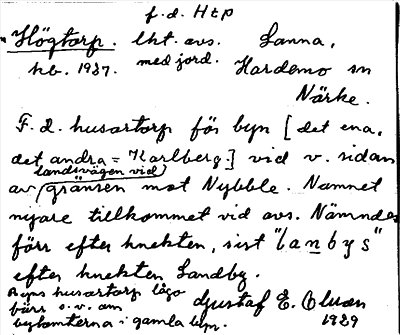 f.d. Htp
Högtorp. lht. avs. Sanna,
hb. 1927. med jord. Hardemo sn
Närke.
F. d. husartorp för byn [det ena,
det andra = Karlberg.] vid v. sidan
landsvägen vid
av gränsen mot Nybble. Namnet
nyare tillkommet vid avs. Nämndes
förr efter knekten, sist "lanbys"
efter knekten Landby.
Byns husartorp lågo
förr s.v. om Gustaf E.
bytomterna i gamla byn. 1929